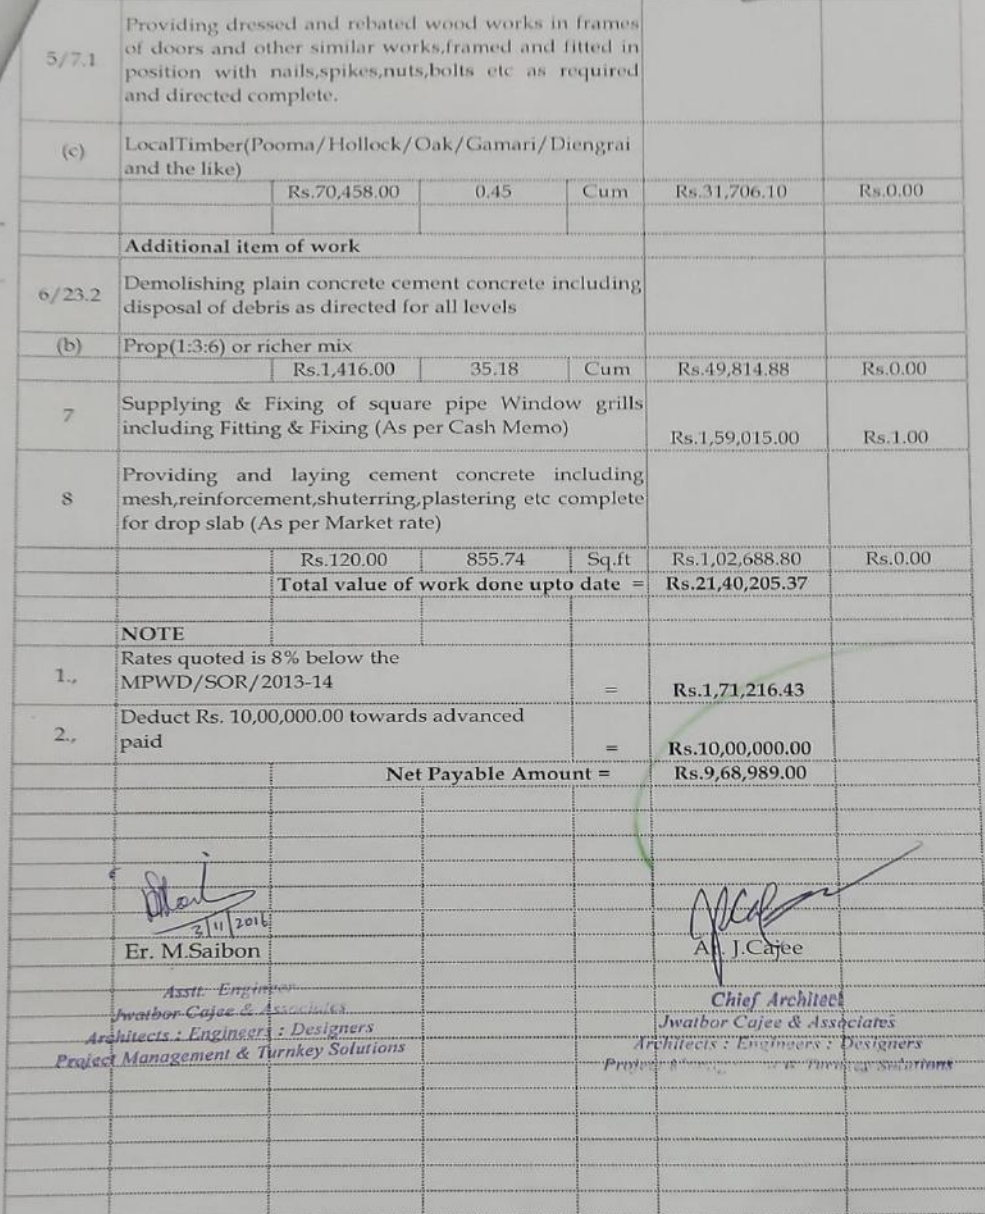 5/7.1
Providing dressed and rebated wood works in frames
of doors and other similar works,framed and fitted in
position with nails,spikes,nuts,bolts etc as required
and directed complete.
(c)
LocalTimber(Pooma/Hollock/Oak/Gamari/Diengrai
and the like)
Rs.70,458.00 0.45 Cum Rs.31,706.10 Rs.0.00
Additional item of work
6/23.2
Demolishing plain concrete cement concrete including
disposal of debris as directed for all levels
(b) Prop(1:3:6) or richer mix
Rs.1,416.00 35.18 Cum Rs.49,814.88 Rs.0.00
7
Supplying & Fixing of square pipe Window grills
including Fitting & Fixing (As per Cash Memo) Rs.1,59,015.00 Rs.1.00
8
Providing and laying cement concrete including
mesh,reinforcement,shuterring,plastering etc complete
for drop slab (As per Market rate)
Rs.120.00 855.74 Sq.ft Rs.1,02,688.80 Rs.0.00
Total value of work done upto date = Rs.21,40,205.37
NOTE
1.,
Rates quoted is 8% below the
MPWD/SOR/2013-14 = Rs.1,71,216.43
2.,
Deduct Rs. 10,00,000.00 towards advanced
paid = Rs.10,00,000.00
Net Payable Amount = Rs.9,68,989.00
3/11/2016
Er. M.Saibon
Asstt. Engineer
Jwatbor Cajee & Associates
Architects : Engineers : Designers
Project Management & Turnkey Solutions
J.Cajee
Chief Architect
Jwatbor Cajee & Associates
Architects : Engineers : Designers
Project & Turnkey Solutions